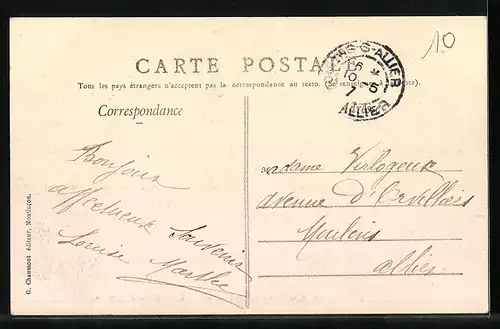 10
CARTE POSTALE
Tous les pays étrangers n'acceptent pas la correspondance au recto. (Se renseigner à la poste).
Correspondance
Adresse
S-ALLIER
ALLIER
Bonjour
affectueux Souvenir
Louise Marthe
Madame Virlogeux
avenue d'Orvilliers
Moulins
allier
G. Chaumont éditeur, Montluçon.